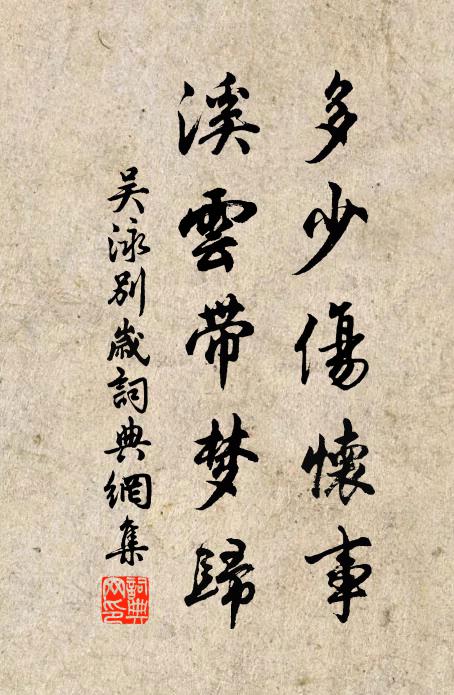 多少傷懷事
溪雲帶梦歸
吴泳别歲詞典網集
詞典網印